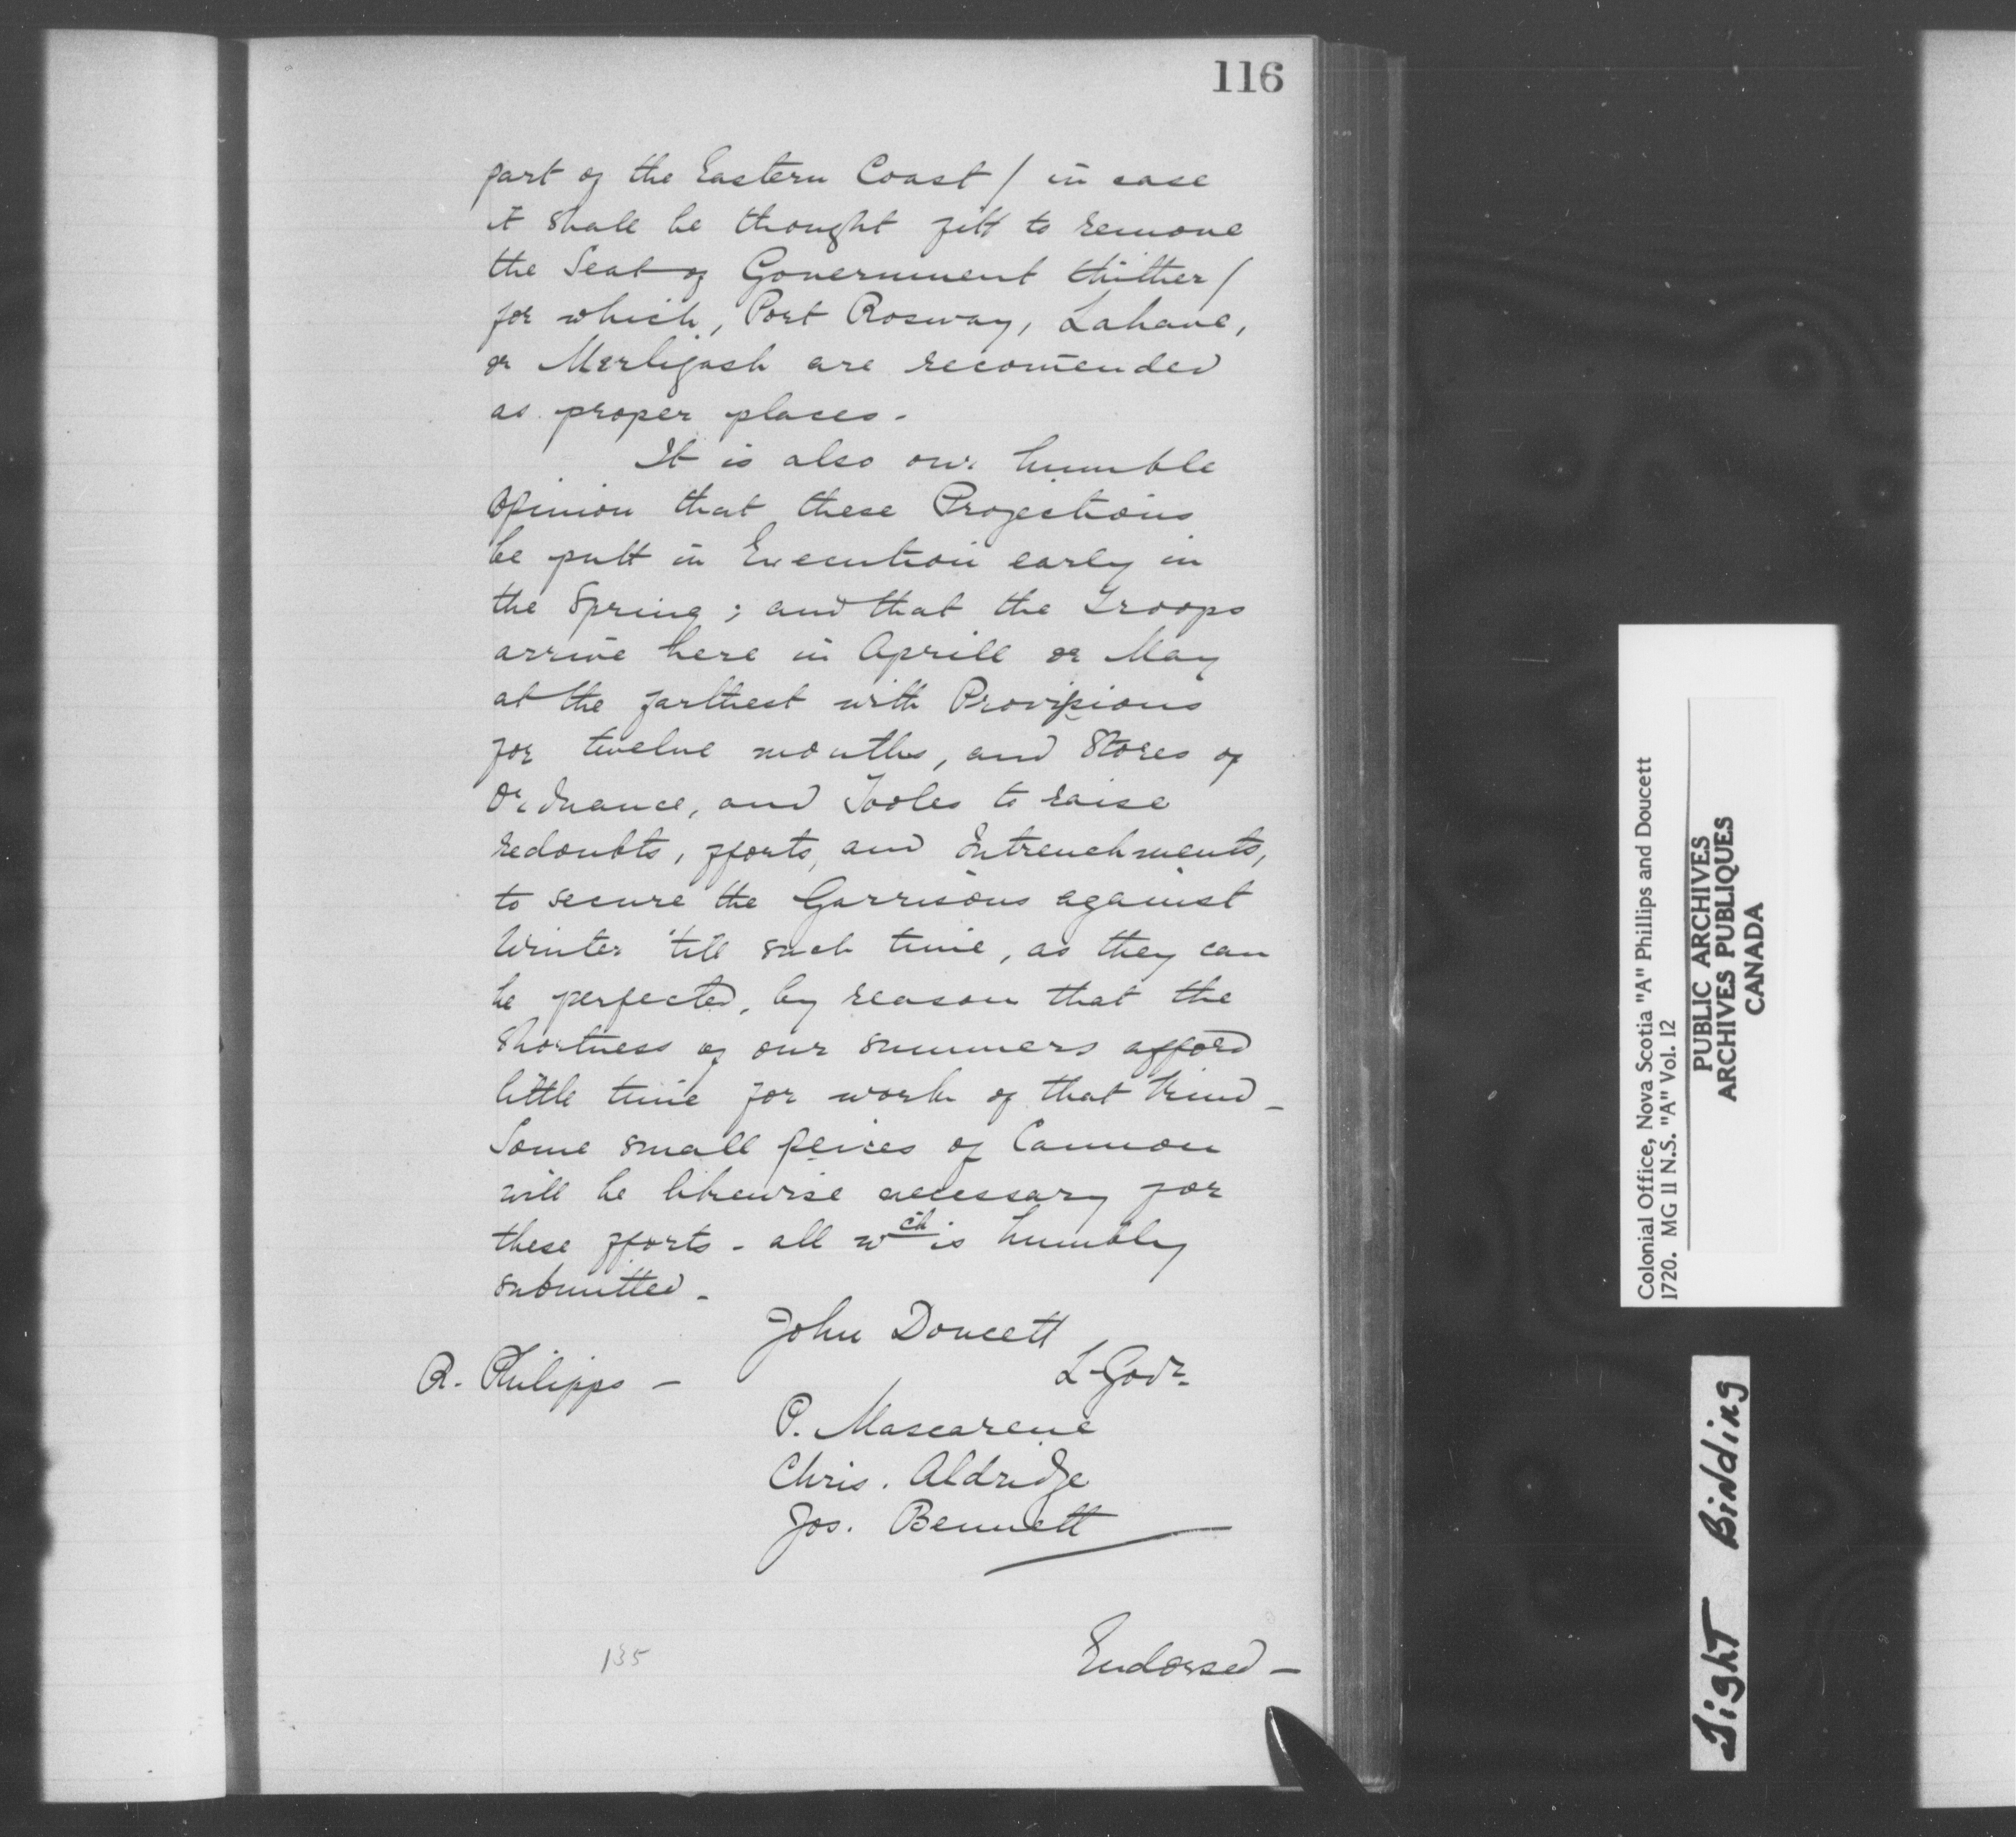 116
part of the Eastern Coast / in case
it shall be thought fitt to remove
the Seat of Government thither /
for which, Port Rosway, Lahave,
or Merligash are recomended
as proper places -
It is also our humble
Opinion that these Projections
be putt in Execution early in
the Spring; and that the Troops
arrive here in Aprill or May
at the farthest with Provisions
for twelve months, and Stores of
Ordnance, and Tooles to raise
redoubts, fforts, and Entrenchments,
to secure the Garrisons against
Winter 'till such time, as they can
be perfected, by reason that the
Shortness of our summers afford
little time for work of that kind -
Some small peices of Cannon
will be likewise necessary for
these fforts - all wch is humbly
submitted -
John Doucett
L Govr.
R. Philipps -
P. Mascarene
Chris. Aldridge
Jos. Bennett
135
Endorsed -
Colonial Office, Nova Scotia "A" Phillips and Doucett
1720. MG 11 N.S. "A" Vol. 12
PUBLIC ARCHIVES
ARCHIVES PUBLIQUES
CANADA
Tight Binding